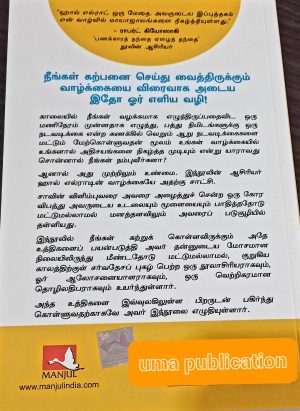 "ஹால் எல்ராட் ஒரு மேதை. அவருடைய இப்புத்தகம்
என் வாழ்வில் மாயாஜாலங்களை நிகழ்த்தியுள்ளது."
— ராபர்ட் கியோஸாகி
'பணக்காரத் தந்தை ஏழைத் தந்தை'
நூலின் ஆசிரியர்
நீங்கள் கற்பனை செய்து வைத்திருக்கும்
வாழ்க்கையை விரைவாக அடைய
இதோ ஓர் எளிய வழி!
காலையில் நீங்கள் வழக்கமாக எழுந்திருப்பதைவிட ஒரு
மணிநேரம் முன்னதாக எழுந்து, பத்து நிமிடங்களுக்கு ஒரு
நடவடிக்கை என்ற கணக்கில் வெறும் ஆறு நடவடிக்கைகளை
மட்டும் மேற்கொள்ளுவதன் மூலம் உங்கள் வாழ்க்கையில்
உங்களால் அதிசயங்களை நிகழ்த்த முடியும் என்று யாராவது
சொன்னால் நீங்கள் நம்புவீர்களா?
ஆனால் அது முற்றிலும் உண்மை. இந்நூலின் ஆசிரியர்
ஹால் எல்ராடின் வாழ்க்கையே அதற்கு சாட்சி.
சாவின் விளிம்புவரை அவரை அழைத்துச் சென்ற ஒரு கோர
விபத்து அவருடைய உடலையும் மூளையையும் பாதித்ததோடு
மட்டுமல்லாமல் மனத்தளவிலும் அவரைப் படுகுழியில்
தள்ளியது.
இந்நூலில் நீங்கள் கற்றுக் கொள்ளவிருக்கும் அதே
உத்திகளைப் பயன்படுத்தி அவர் தன்னுடைய மோசமான
நிலையிலிருந்து மீண்டதோடு மட்டுமல்லாமல், குறுகிய
காலத்திற்குள் சர்வதேசப் புகழ் பெற்ற ஒரு நூலாசிரியராகவும்,
ஓர் ஆலோசனையாளராகவும், ஒரு வெற்றிகரமான
தொழிலதிபராகவும் உயர்ந்துள்ளார்.
அந்த உத்திகளை இவ்வுலகிலுள்ள பிறருடன் பகிர்ந்து
கொள்ளுவதற்காகவே அவர் இந்நூலை எழுதியுள்ளார்.
MANJUL
www.manjulindia.com
uma publication